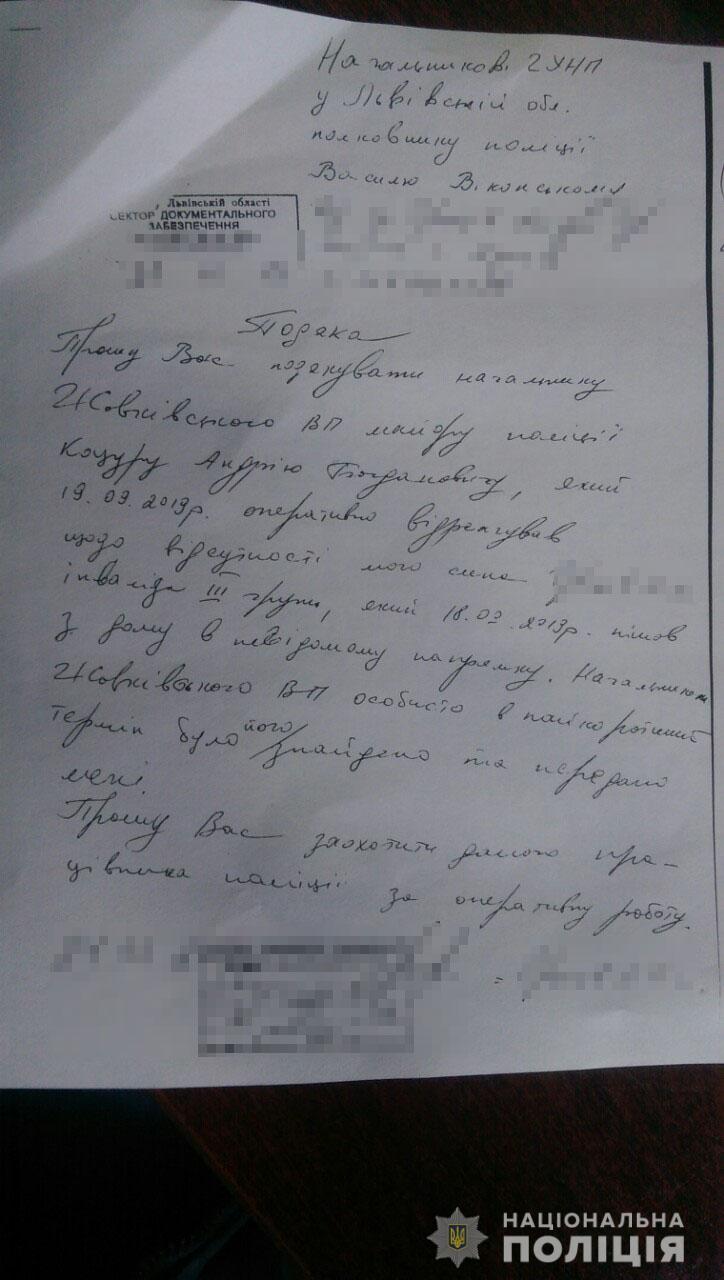 Начальникові ГУНП
у Львівській обл.
полковнику поліції
Василю Віконському
, Львівській області
СЕКТОР ДОКУМЕНТАЛЬНОГО
ЗАБЕЗПЕЧЕННЯ
Подяка
Прошу Вас подякувати начальнику
Жовківського ВП майору поліції
Коцуру Андрію Богдановичу, який
19.09.2019р. оперативно відреагував
щодо відсутності мого сина
інваліда III групи, який 18.09.2019р. пішов
з дому в невідомому напрямку. Начальником
Жовківського ВП особисто в найкоротший
термін було його знайдено та передано
мені.
Прошу Вас заохотити даного пра-
цівника поліції за оперативну роботу.
НАЦІОНАЛЬНА
ПОЛІЦІЯ